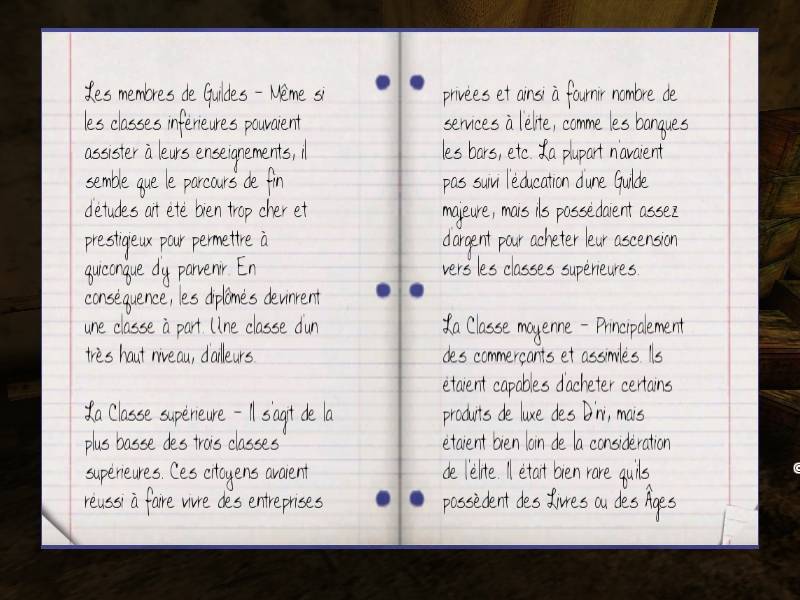 Les membres de Guildes - Même si
les classes inférieures pouvaient
assister à leurs enseignements, il
semble que le parcours de fin
d'études ait été bien trop cher et
prestigieux pour permettre à
quiconque d'y parvenir. En
conséquence, les diplômés devinrent
une classe à part. Une classe d'un
très haut niveau, d'ailleurs.
La Classe supérieure - Il s'agit de la
plus basse des trois classes
supérieures. Ces citoyens avaient
réussi à faire vivre des entreprises
privées et ainsi à fournir nombre de
services à l'élite, comme les banques
les bars, etc. La plupart n'avaient
pas suivi l'éducation d'une Guilde
majeure, mais ils possédaient assez
d'argent pour acheter leur ascension
vers les classes supérieures.
La Classe moyenne - Principalement
des commerçants et assimilés. Ils
étaient capables d'acheter certains
produits de luxe des D'ni, mais
étaient bien loin de la considération
de l'élite. Il était bien rare qu'ils
possèdent des Livres ou des Âges